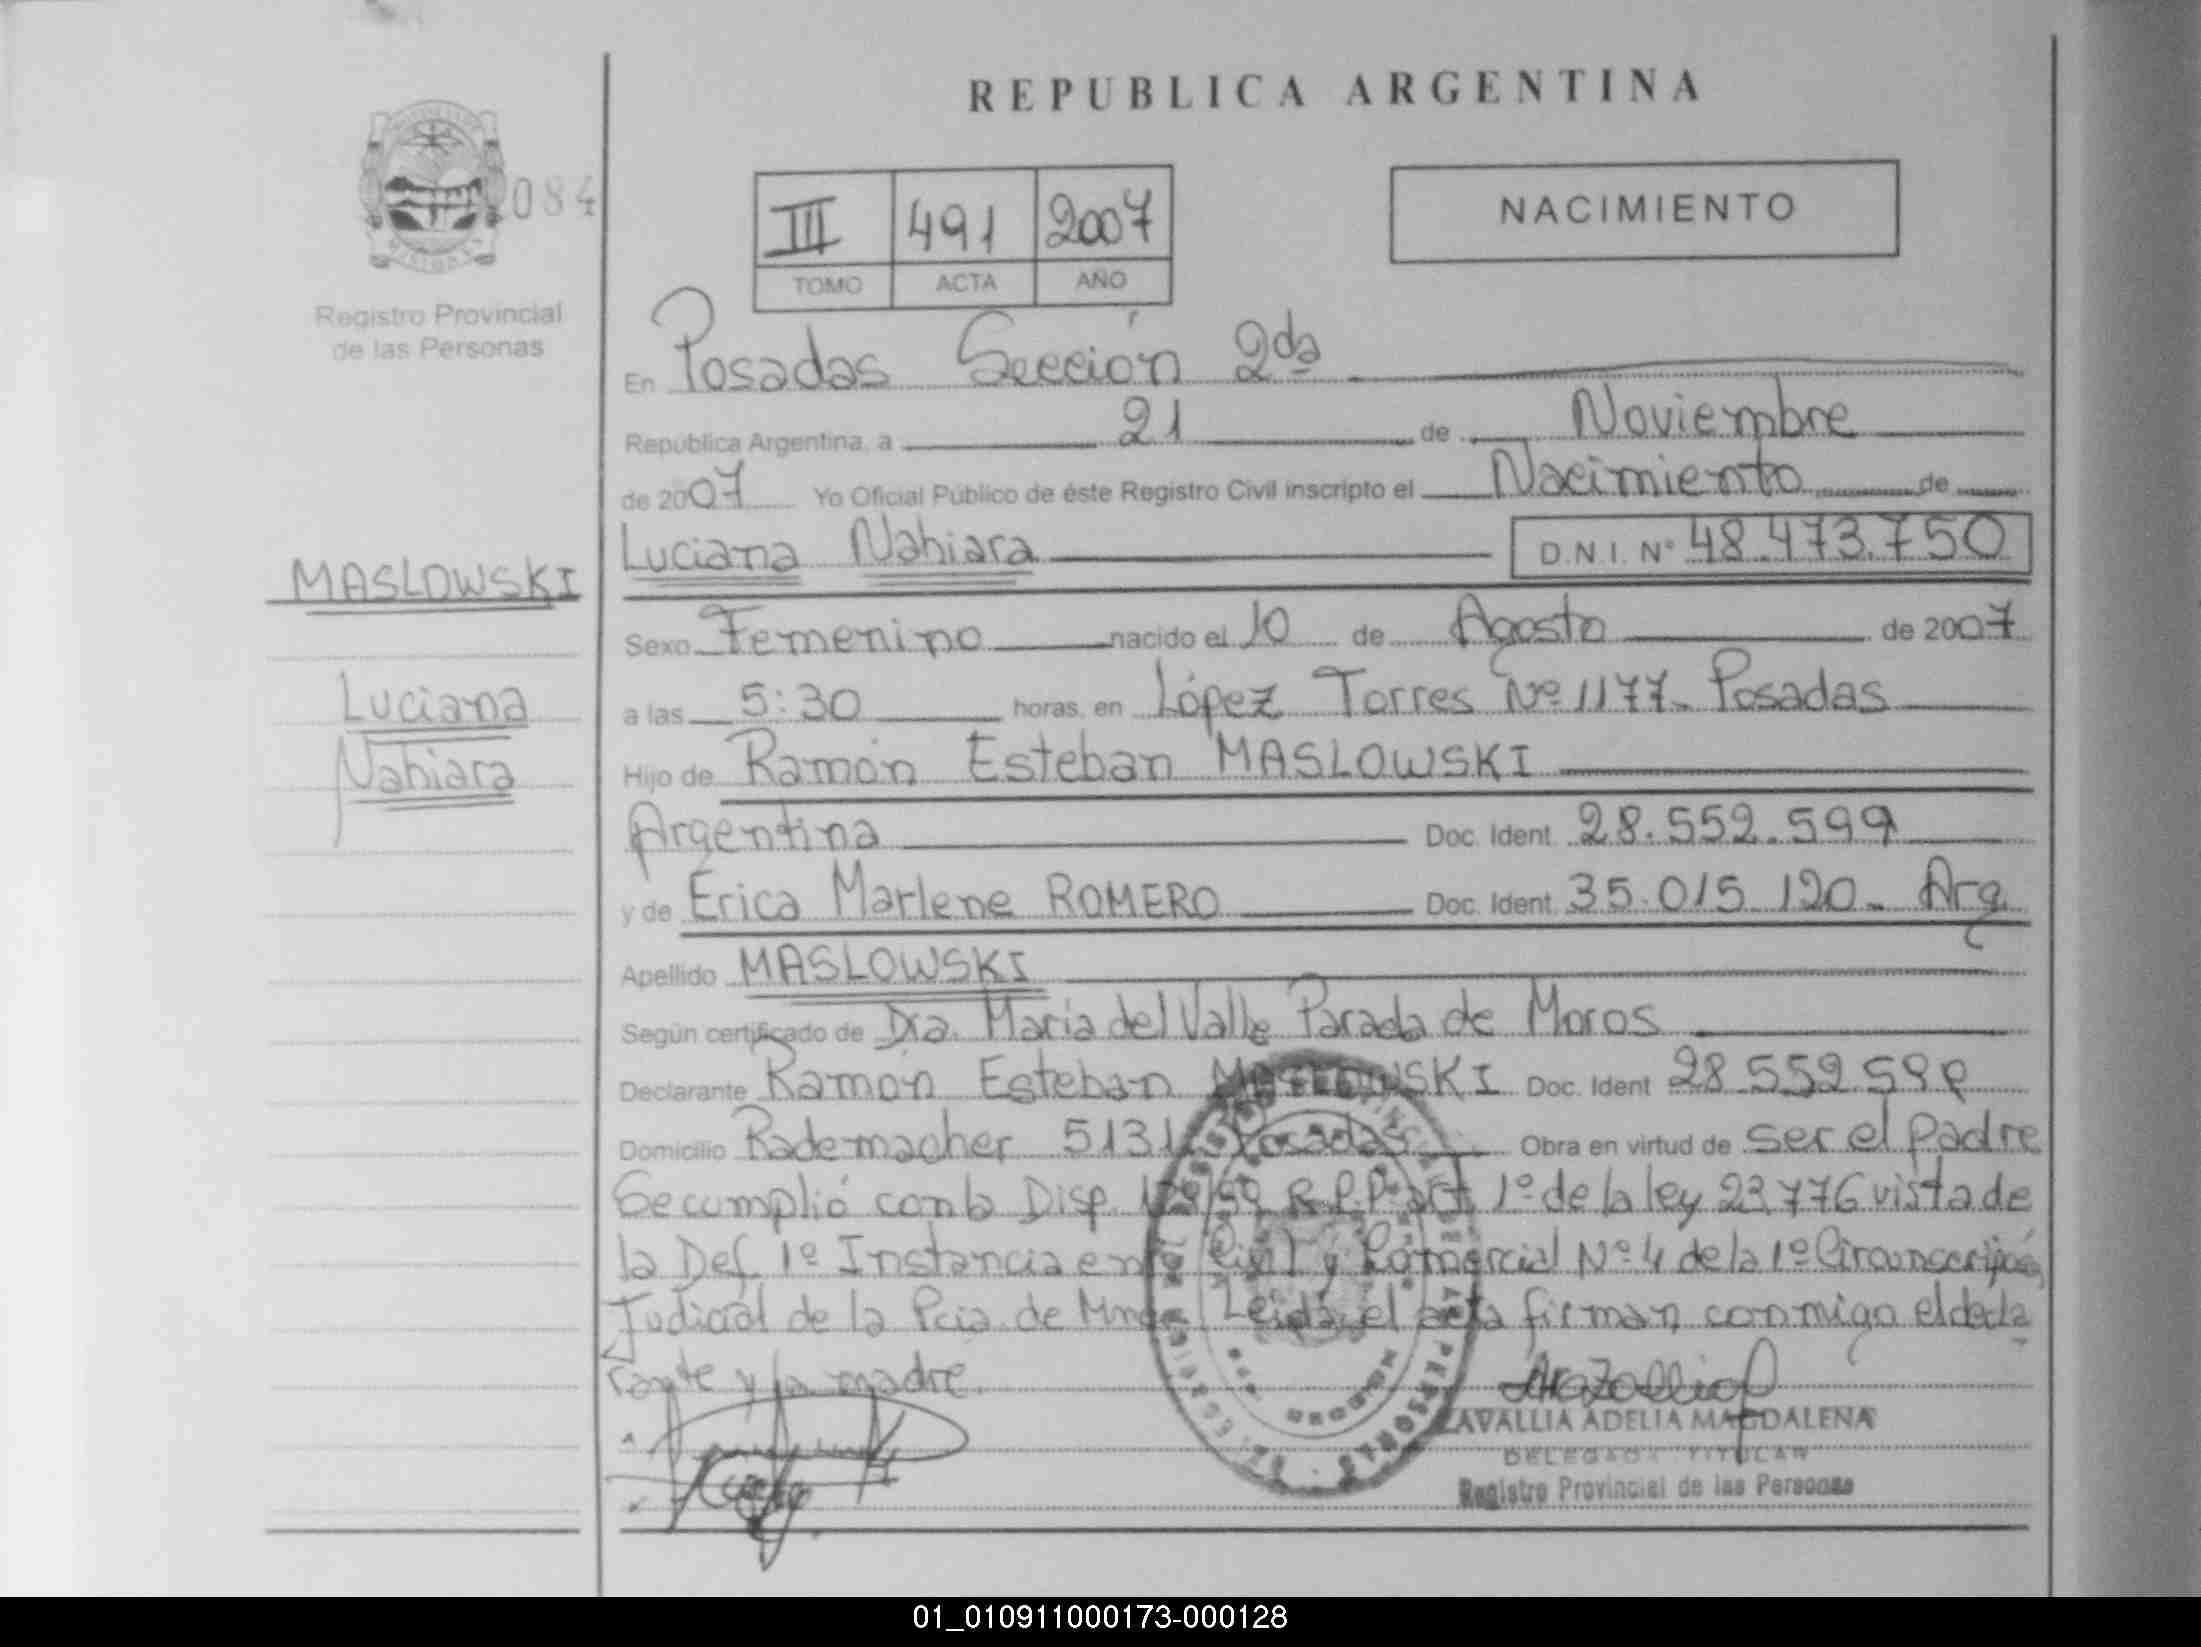 REPUBLICA ARGENTINA
084
III 491 2007
TOMO ACTA AÑO
NACIMIENTO
Registro Provincial
de las Personas
En Posadas Sección 2da
República Argentina, a 21 de Noviembre
de 2007 Yo Oficial Público de éste Registro Civil inscripto el Nacimiento de
Luciana Nahiara D.N.I. Nº 48.473.750
MASLOWSKI
Luciana
Nahiara
Sexo Femenino nacido el 10 de Agosto de 2007
a las 5:30 horas, en López Torres Nº 1177. Posadas
Hijo de Ramón Esteban MASLOWSKI
Argentina Doc. Ident. 28.552.599
y de Erica Marlene ROMERO Doc. Ident. 35.015.120. Arg.
Apellido MASLOWSKI
Según certificado de Dra. Maria del Valle Parada de Moros
Declarante Ramón Esteban MASLOWSKI Doc. Ident 28.552.599
Domicilio Rademacher 5131 Posadas Obra en virtud de ser el padre
Se cumplió con la Disp. R.P.P. art 1º de la ley 23.776 vista de
la Def. 1º Instancia en lo Civil y Comercial Nº 4 de la 1º Circunscripción
Judicial de la Pcia. de Mnes. Leida el acta firman conmigo el decla
rante y la madre.
ZAVALLIA ADELIA MAGDALENA
DELEGADA TITULAR
Registro Provincial de las Personas
01_010911000173-000128